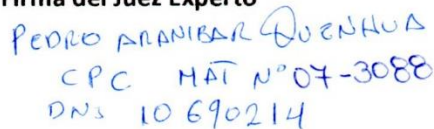 Firma del Juez Experto
PEDRO ARANIBAR QUENHUA
CPC MAT N° 07-3088
DNI 10690214